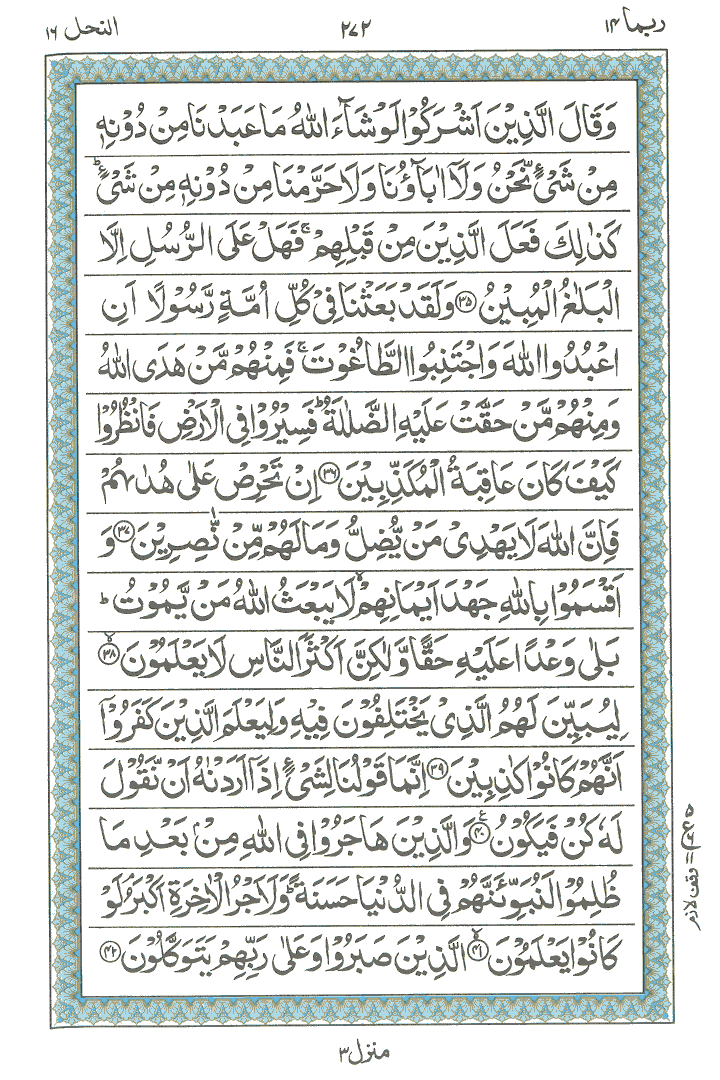 ربما ۱۴
۲۷۲
النحل ۱۶
وَقَالَ الَّذِيْنَ اَشْرَكُوْا لَوْ شَآءَ اللّٰهُ مَا عَبَدْنَا مِنْ دُوْنِهٖ
مِنْ شَیْءٍ نَّحْنُ وَلَاۤ اٰبَآؤُنَا وَلَا حَرَّمْنَا مِنْ دُوْنِهٖ مِنْ شَیْءٍؕ
كَذٰلِكَ فَعَلَ الَّذِيْنَ مِنْ قَبْلِهِمْۚ فَهَلْ عَلَی الرُّسُلِ اِلَّا
الْبَلٰغُ الْمُبِيْنُ ۝۳۵ وَلَقَدْ بَعَثْنَا فِیْ كُلِّ اُمَّةٍ رَّسُوْلًا اَنِ
اعْبُدُوا اللّٰهَ وَاجْتَنِبُوا الطَّاغُوْتَۚ فَمِنْهُمْ مَّنْ هَدَی اللّٰهُ
وَمِنْهُمْ مَّنْ حَقَّتْ عَلَيْهِ الضَّلٰلَةُؕ فَسِيْرُوْا فِی الْاَرْضِ فَانْظُرُوْا
كَيْفَ كَانَ عَاقِبَةُ الْمُكَذِّبِيْنَ ۝۳۶ اِنْ تَحْرِصْ عَلٰی هُدٰىهُمْ
فَاِنَّ اللّٰهَ لَا يَهْدِیْ مَنْ يُّضِلُّ وَمَا لَهُمْ مِّنْ نّٰصِرِيْنَ ۝۳۷ وَ
اَقْسَمُوْا بِاللّٰهِ جَهْدَ اَيْمَانِهِمْۙ لَا يَبْعَثُ اللّٰهُ مَنْ يَّمُوْتُؕ
بَلٰی وَعْدًا عَلَيْهِ حَقًّا وَّلٰكِنَّ اَكْثَرَ النَّاسِ لَا يَعْلَمُوْنَۙ ۝۳۸
لِيُبَيِّنَ لَهُمُ الَّذِیْ يَخْتَلِفُوْنَ فِيْهِ وَلِيَعْلَمَ الَّذِيْنَ كَفَرُوْۤا
اَنَّهُمْ كَانُوْا كٰذِبِيْنَ ۝۳۹ اِنَّمَا قَوْلُنَا لِشَیْءٍ اِذَاۤ اَرَدْنٰهُ اَنْ نَّقُوْلَ
لَهٗ كُنْ فَيَكُوْنُ ۝۴۰ وَالَّذِيْنَ هَاجَرُوْا فِی اللّٰهِ مِنْۢ بَعْدِ مَا
ظُلِمُوْا لَنُبَوِّئَنَّهُمْ فِی الدُّنْيَا حَسَنَةًؕ وَلَاَجْرُ الْاٰخِرَةِ اَكْبَرُۘ لَوْ
كَانُوْا يَعْلَمُوْنَۙ ۝۴۱ الَّذِيْنَ صَبَرُوْا وَعَلٰی رَبِّهِمْ يَتَوَكَّلُوْنَ ۝۴۲
وقف لازم
منزل ۳